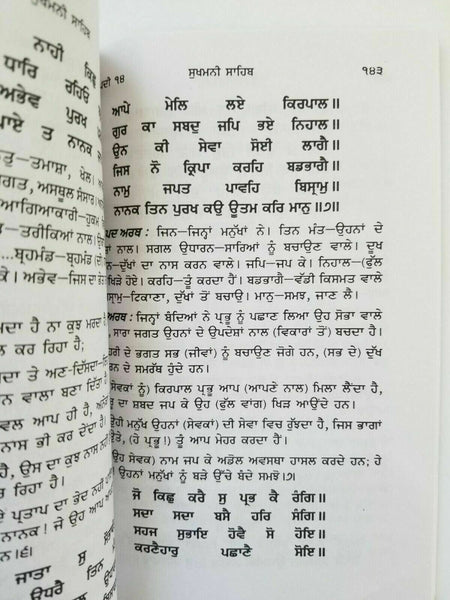 ਨਾਹੀ
ਧਾਰਿ ਰਹਿਓ
ਅਭੇਵ ਪੁਰਖ
ਤ ਨਾਨਕ
ਤਮਾਸ਼ਾ, ਖੇਲ।
ਅਸਥੂਲ ਸੰਸਾਰ।
ਆਗਿਆਕਾਰੀ—ਹੁਕਮ
ਤਰੀਕਿਆਂ ਨਾਲ।
ਬ੍ਰਹਮੰਡ—ਬ੍ਰਹਮੰਡ
ਕੇ। ਅਭੇਵ—ਜਿਸ ਦਾ
ਹੈ ਨਾ ਕੁਝ ਮਰਦਾ ਹੈ
ਕਰ ਰਿਹਾ ਹੈ;
ਤੇ ਅਣ-ਦਿੱਸਦਾ
ਵਾਲਾ ਬਣਾ ਦਿੱਤਾ ਹੈ
ਆਪ ਹੀ ਹੈ,
ਨਾਸ ਭੀ ਕਰ ਦੇਂਦਾ
ਹੈ, ਉਸ ਦਾ ਕੁਝ ਨਾਸ
ਰਿਹਾ ਹੈ।
ਪ੍ਰਤਾਪ ਦਾ ਭੇਦ ਨਹੀਂ
ਨਾਨਕ! ਜੇ ਉਹ ਆਪ
ਨ।੬।
ਜਾਤਾ ਸੁ
ਉਧਰੈ ਤਿਨ
੧੪ ਸੁਖਮਨੀ ਸਾਹਿਬ ੧੪੩
ਆਪੇ ਮੇਲਿ ਲਏ ਕਿਰਪਾਲ॥
ਗੁਰ ਕਾ ਸਬਦੁ ਜਪਿ ਭਏ ਨਿਹਾਲ॥
ਉਨ ਕੀ ਸੇਵਾ ਸੋਈ ਲਾਗੈ॥
ਜਿਸ ਨੋ ਕ੍ਰਿਪਾ ਕਰਹਿ ਬਡਭਾਗੈ॥
ਨਾਮੁ ਜਪਤ ਪਾਵਹਿ ਬਿਸ੍ਰਾਮੁ॥
ਨਾਨਕ ਤਿਨ ਪੁਰਖ ਕਉ ਊਤਮ ਕਰਿ ਮਾਨੁ॥੭॥
ਪਦ ਅਰਥ : ਜਿਨ—ਜਿਨ੍ਹਾਂ ਮਨੁੱਖਾਂ ਨੇ। ਤਿਨ ਮੰਤ—ਉਹਨਾਂ ਦੇ
ਨਾਲ। ਸਗਲ ਉਧਾਰਨ—ਸਾਰਿਆਂ ਨੂੰ ਬਚਾਉਣ ਵਾਲੇ। ਦੂਖ
ਦੁੱਖਾਂ ਦਾ ਨਾਸ ਕਰਨ ਵਾਲੇ। ਜਪਿ—ਜਪ ਕੇ। ਨਿਹਾਲ—(ਫੁੱਲ
ਖਿੜੇ ਹੋਏ। ਕਰਹਿ—ਤੂੰ ਕਰਦਾ ਹੈਂ। ਬਡਭਾਗੈ—ਵੱਡੀ ਕਿਸਮਤ ਵਾਲੇ
ਟਿਕਾਣਾ, ਦੁੱਖਾਂ ਤੋਂ ਬਚਾਉ। ਮਾਨੁ—ਸਮਝ, ਜਾਣ ਲੈ।
ਅਰਥ : ਜਿਨ੍ਹਾਂ ਬੰਦਿਆਂ ਨੇ ਪ੍ਰਭੂ ਨੂੰ ਪਛਾਣ ਲਿਆ ਉਹ ਸੋਭਾ ਵਾਲੇ
ਸਾਰਾ ਜਗਤ ਉਹਨਾਂ ਦੇ ਉਪਦੇਸ਼ਾਂ ਨਾਲ (ਵਿਕਾਰਾਂ ਤੋਂ) ਬਚਦਾ ਹੈ।
ਹਰੀ ਦੇ ਭਗਤ ਸਭ (ਜੀਵਾਂ) ਨੂੰ ਬਚਾਉਣ ਜੋਗੇ ਹਨ, (ਸਭ ਦੇ) ਦੁੱਖ
ਕਰਨ ਦੇ ਸਮਰੱਥ ਹੁੰਦੇ ਹਨ।
(ਸੇਵਕਾਂ ਨੂੰ) ਕਿਰਪਾਲ ਪ੍ਰਭੂ ਆਪ (ਆਪਣੇ ਨਾਲ) ਮਿਲਾ ਲੈਂਦਾ ਹੈ,
ਦਾ ਸ਼ਬਦ ਜਪ ਕੇ ਉਹ (ਫੁੱਲ ਵਾਂਗ) ਖਿੜ ਆਉਂਦੇ ਹਨ।
ਉਹੀ ਮਨੁੱਖ ਉਹਨਾਂ (ਸੇਵਕਾਂ) ਦੀ ਸੇਵਾ ਵਿਚ ਰੁੱਝਦਾ ਹੈ, ਜਿਸ ਭਾਗਾਂ
ਉਤੇ, (ਹੇ ਪ੍ਰਭੂ!) ਤੂੰ ਆਪ ਮੇਹਰ ਕਰਦਾ ਹੈਂ।
(ਉਹ ਸੇਵਕ) ਨਾਮ ਜਪ ਕੇ ਅਡੋਲ ਅਵਸਥਾ ਹਾਸਲ ਕਰਦੇ ਹਨ; ਹੇ
ਉਹਨਾਂ ਮਨੁੱਖਾਂ ਨੂੰ ਬੜੇ ਉੱਚੇ ਬੰਦੇ ਸਮਝ।੭।
ਜੋ ਕਿਛੁ ਕਰੈ ਸੁ ਪ੍ਰਭ ਕੈ ਰੰਗਿ॥
ਸਦਾ ਸਦਾ ਬਸੈ ਹਰਿ ਸੰਗਿ॥
ਸਹਜ ਸੁਭਾਇ ਹੋਵੈ ਸੋ ਹੋਇ॥
ਕਰਣੈਹਾਰੁ ਪਛਾਣੈ ਸੋਇ॥